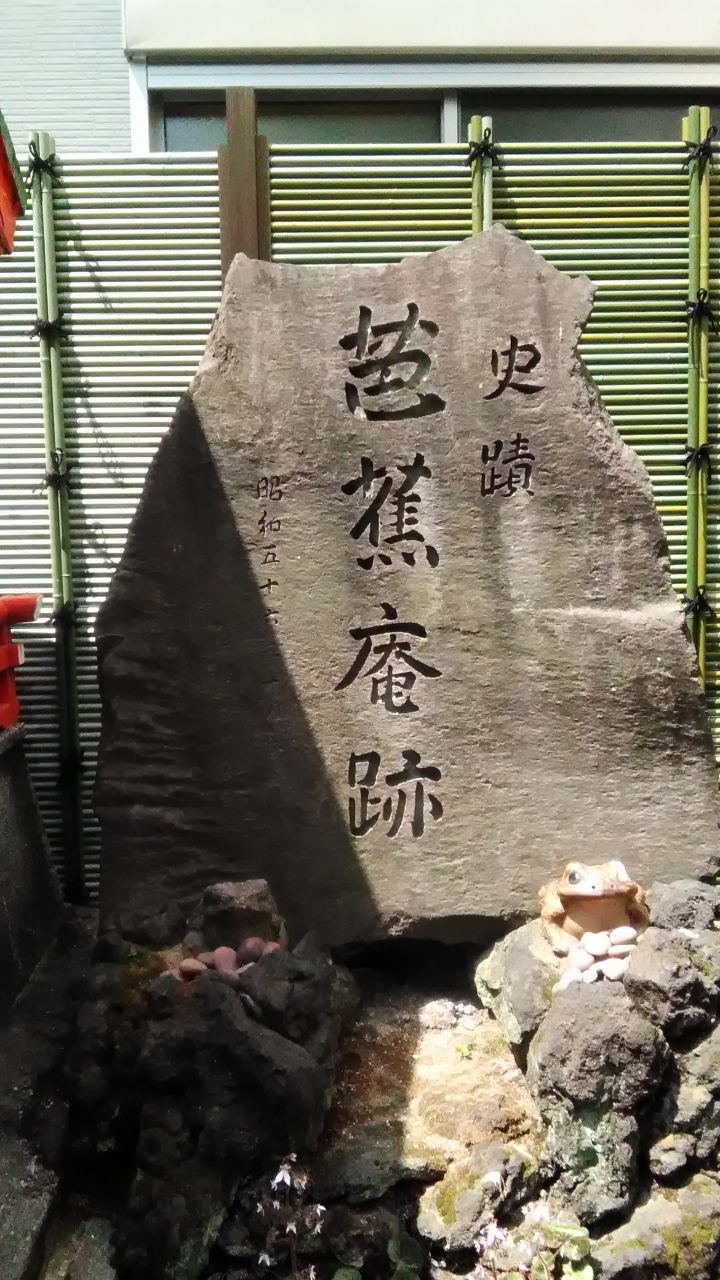 史蹟
芭蕉庵跡
昭和五十六